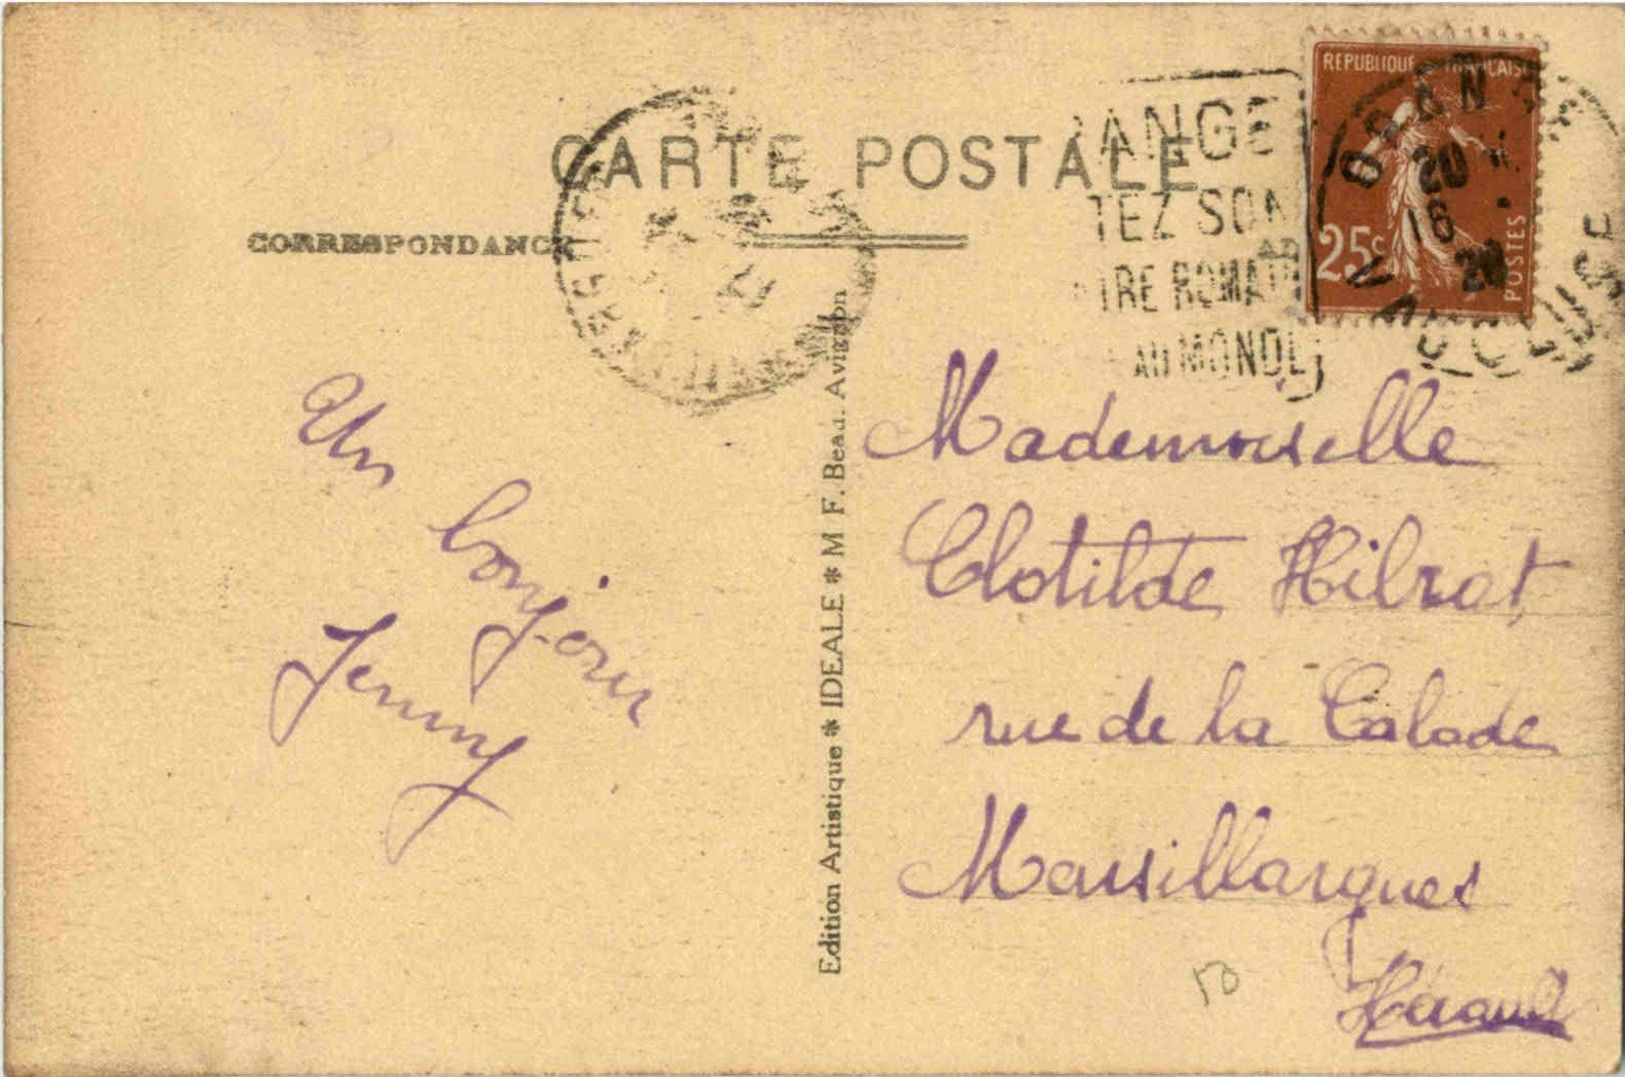 CARTE POSTALE
CORRESPONDANCE
ANGE
TEZ SON
TRE ROMAIN
AU MONDE
REPUBLIQUE FRANÇAISE
25c
POSTES
ORANGE
20
16
VAUCLUSE
Un
bonjour
Jenny
Edition Artistique * IDEALE * M F. Beau. Avignon
Mademoiselle
Clotilde Hilrat
rue de la Calade
Marsillargues
Hérault
50